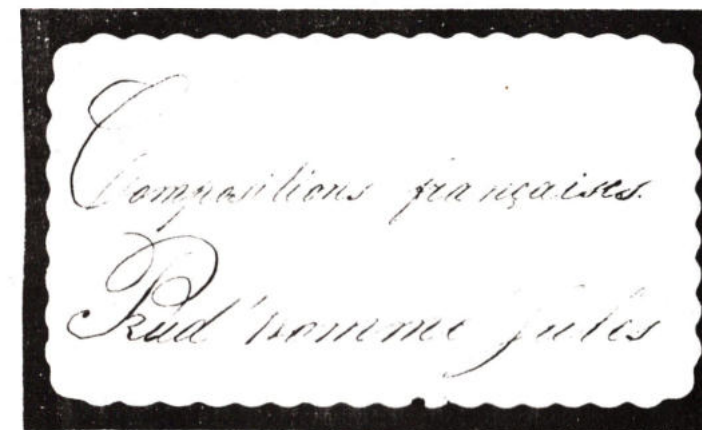 Compositions françaises.
Prud'homme Jules